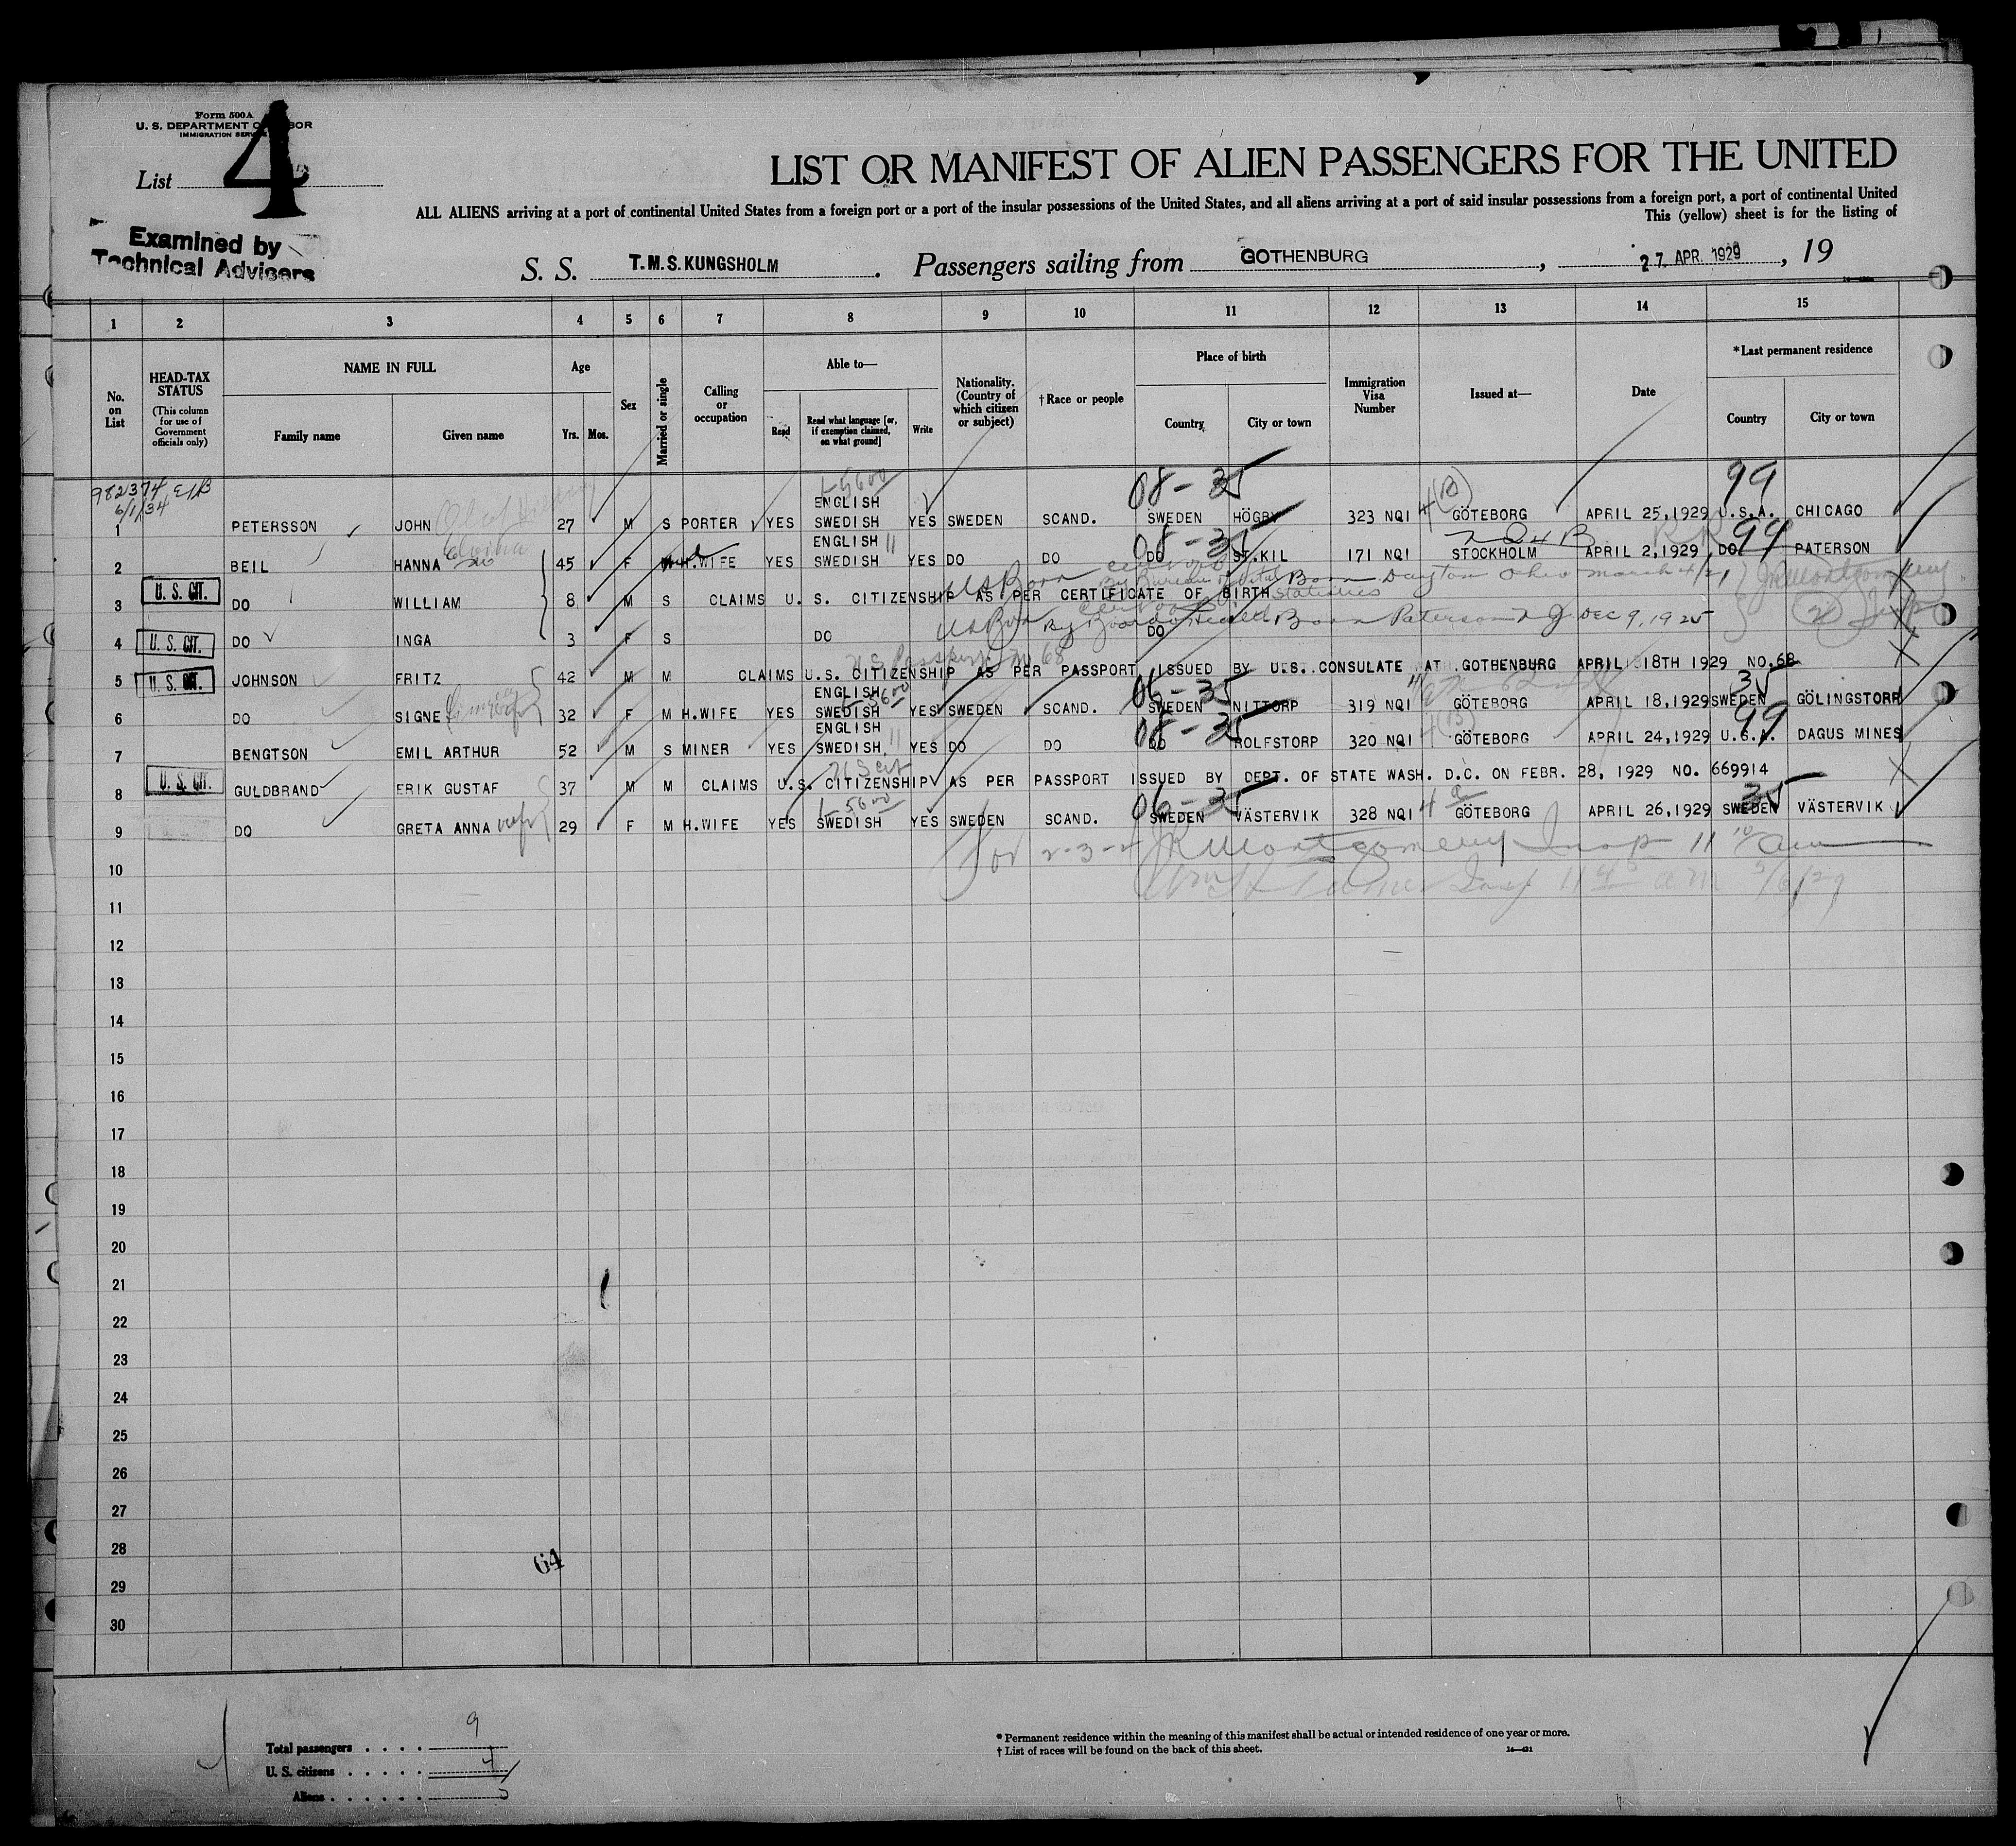 Form 500A
U. S. DEPARTMENT OF LABOR
IMMIGRATION SERVICE
List 4
Examined by
Technical Advisers
LIST OR MANIFEST OF ALIEN PASSENGERS FOR THE UNITED
ALL ALIENS arriving at a port of continental United States from a foreign port or a port of the insular possessions of the United States, and all aliens arriving at a port of said insular possessions from a foreign port, a port of continental United
This (yellow) sheet is for the listing of
S. S. T.M.S. KUNGSHOLM. Passengers sailing from GOTHENBURG, 27 APR. 1929, 19
1 2 3 4 5 6 7 8 9 10 11 12 13 14 15
No. on List
HEAD-TAX STATUS (This column for use of Government officials only)
NAME IN FULL Family name Given name
Age Yrs. Mos.
Sex
Married or single
Calling or occupation
Able to— Read Read what language [or, if exemption claimed, on what ground] Write
Nationality. (Country of which citizen or subject)
†Race or people
Place of birth Country City or town
Immigration Visa Number
Issued at—
Date
*Last permanent residence Country City or town
982374 6/1/34
5600 ENGLISH 08-35 4(B) 99
1 PETERSSON JOHN 27 M S PORTER YES SWEDISH YES SWEDEN SCAND. SWEDEN HÖGBY 323 NQI GÖTEBORG APRIL 25,1929 U.S.A. CHICAGO
ENGLISH 08-35 99
2 BEIL HANNA 45 F H.WIFE YES SWEDISH YES DO DO DO ST.KIL 171 NQI STOCKHOLM APRIL 2,1929 DO PATERSON
US Born By Bureau of Vital Statistics Born Dayton Ohio March 4/21
U. S. CIT.
3 DO WILLIAM 8 M S CLAIMS U. S. CITIZENSHIP AS PER CERTIFICATE OF BIRTH
US Born By Board of Health Born Paterson N J DEC 9, 1925
U. S. CIT.
4 DO INGA 3 F S DO DO
US Passport No 68
U. S. CIT.
5 JOHNSON FRITZ 42 M M CLAIMS U.S. CITIZENSHIP AS PER PASSPORT ISSUED BY U.S. CONSULATE AT GOTHENBURG APRIL 18TH 1929 NO.68
ENGLISH 5600 06-35 35
6 DO SIGNE 32 F M H.WIFE YES SWEDISH YES SWEDEN SCAND. SWEDEN NITTORP 319 NQI GÖTEBORG APRIL 18,1929 SWEDEN GÖLINGSTORP
ENGLISH 08-35 4(B) 99
7 BENGTSON EMIL ARTHUR 52 M S MINER YES SWEDISH YES DO DO DO ROLFSTORP 320 NQI GÖTEBORG APRIL 24,1929 U.S.A. DAGUS MINES
US Cit
U. S. CIT.
8 GULDBRAND ERIK GUSTAF 37 M M CLAIMS U.S. CITIZENSHIP AS PER PASSPORT ISSUED BY DEPT. OF STATE WASH. D.C. ON FEBR. 28, 1929 NO. 669914
5600 06-35 4 a 35
9 DO GRETA ANNA wife 29 F M H.WIFE YES SWEDISH YES SWEDEN SCAND. SWEDEN VÄSTERVIK 328 NQI GÖTEBORG APRIL 26,1929 SWEDEN VÄSTERVIK
For 2-3-4 JR Montgomery Insp 11 10 am
10
Turner Insp 11 45 am 5/6/29
11
12
13
14
15
16
17
18
19
20
21
22
23
24
25
26
27
28
64
29
30
Total passengers . . . . 9
U. S. citizens . . . . . 4
Aliens . . . . . . 5
* Permanent residence within the meaning of this manifest shall be actual or intended residence of one year or more.
† List of races will be found on the back of this sheet.
14—421